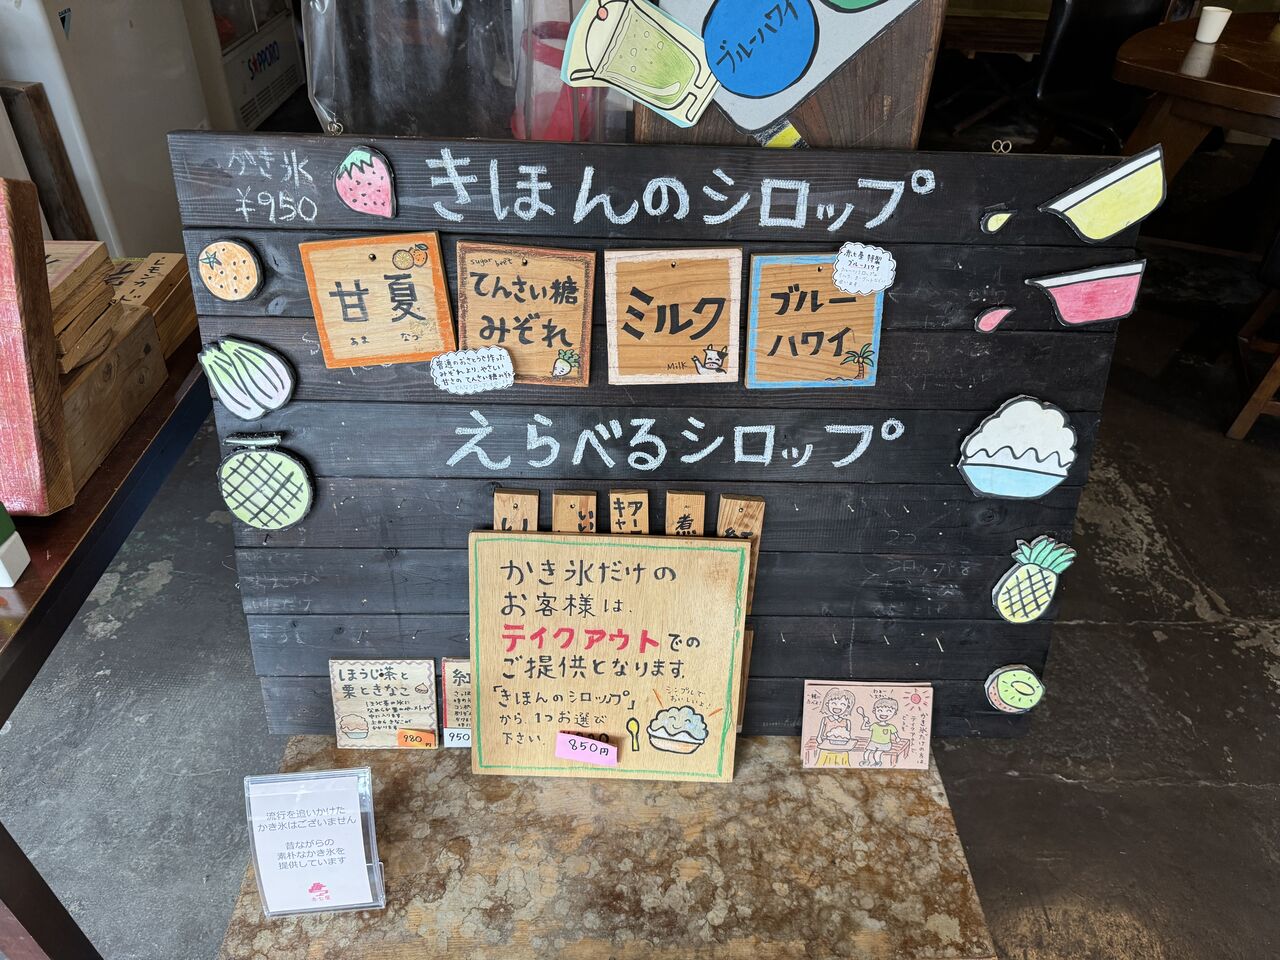 SAPPORO
ブルーハワイ
かき氷
¥950
きほんのシロップ
甘夏
あま なつ
sugar beet
てんさい糖
みぞれ
普通のおさとうで作った
みぞれより、やさしい
甘さの てんさい糖みぞれ
ミルク
Milk
ブルー
ハワイ
特製
ブルーハワイ
えらべるシロップ
い
いい
アー
キャ
煮
紅
かき氷だけの
お客様は、
テイクアウトでの
ご提供となります。
「きほんのシロップ」
から 1つお選び
下さい。
850円
シンプルで
おいしいよ!
ほうじ茶と
栗ときなこ
980円
紅
950
かき氷だけの方は
テイクアウトで
どうぞ
流行を追いかけた
かき氷はございません
昔ながらの
素朴なかき氷を
提供しています